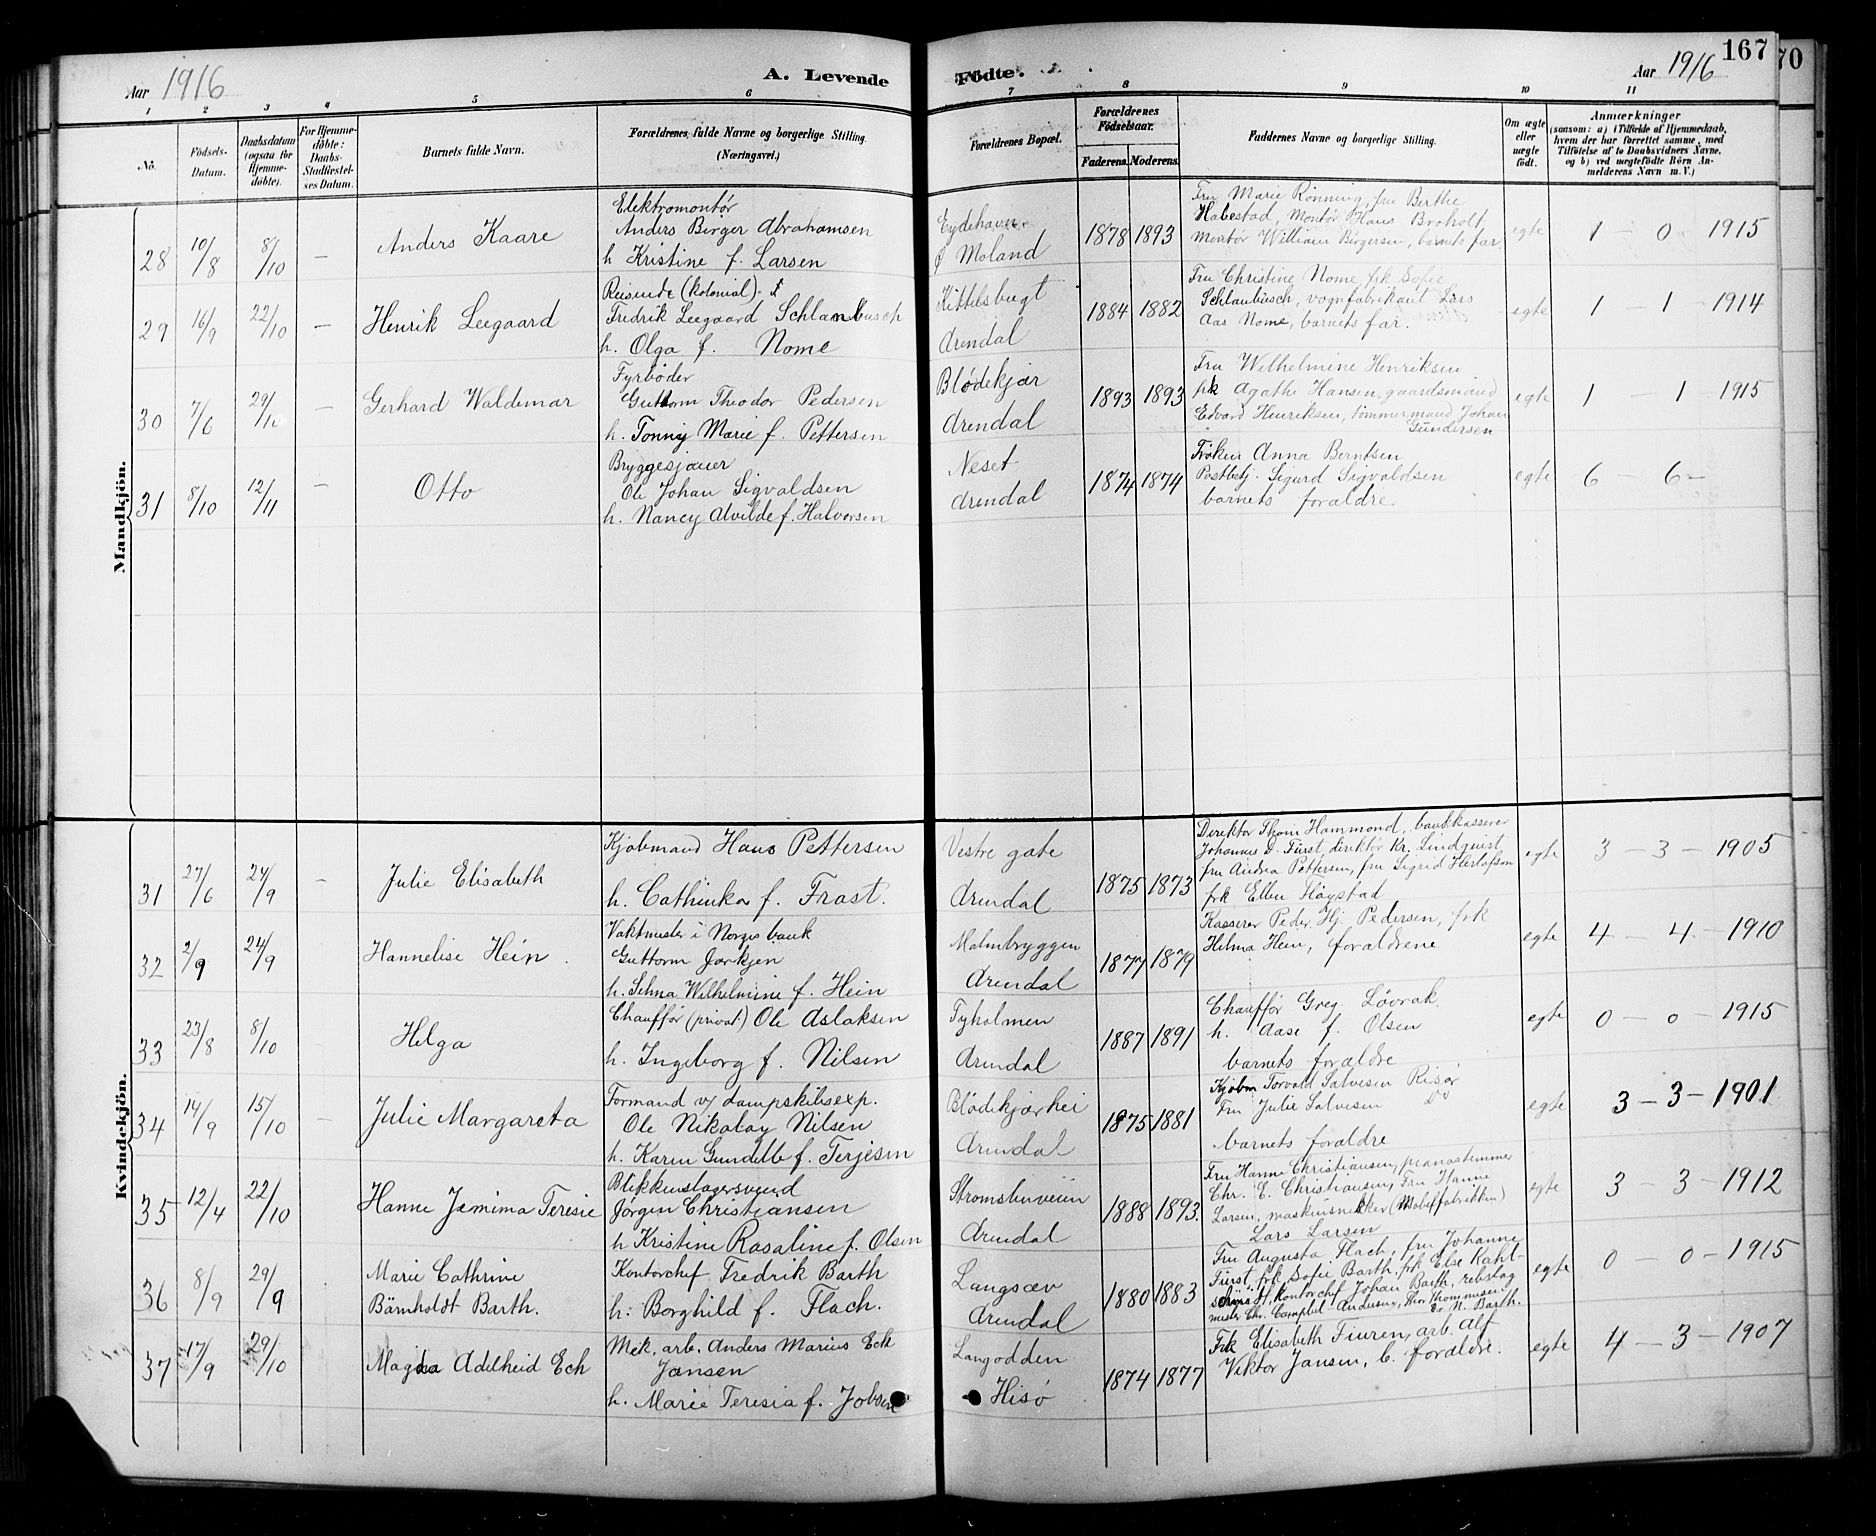 167
70
Aar 1916
A. Levende
Födte.
Aar 1916
1 2 3 4 5 6 7 8 9 10 11
No.
Födsels-Datum.
Daabsdatum (ogsaa for Hjemme-döbte).
For Hjemme-döbte: Daabs-Stadfæstel-ses Datum.
Barnets fulde Navn.
Forældrenes fulde Navne og borgerlige Stilling.
(Næringsvei.)
Forældrenes Bopæl.
Forældrenes Födselsaar.
Faderens. Moderens.
Faddernes Navne og borgerlige Stilling.
Om ægte eller uægte födt.
Anmærkninger
(saasom: a) i Tilfælde af Hjemmedaab,
hvem der har forrettet samme, med
Tilföielse af to Daabsvidners Navne,
og b) ved uegtefödte Börn An-
melderens Navn m. V.)
Mandkjön.
28 10/8 8/10 — Anders Kaare
Elektromontør
Anders Birger Abrahamsen
h Kristine f. Larsen
Eydehavn
Ø Moland
1878 1893
Fru Marie Rönning, fru Berthe
Habestad, Montör Hans Broholt
Montör William Birgersen, barnets far
egte
1 — 0 — 1915
29 16/9 22/10 — Henrik Leegaard
Reisende (kolonial)
Fredrik Leegaard Schlanbusch
h. Olga f. Nome
Kittelsbugt
Arendal
1884 1882
Fru Christine Nome, frk Sofie
Schlanbusch, vognfabrikant Lars
Aas Nome, barnets far.
egte
1 — 1 — 1914
30 7/6 29/10 — Gerhard Waldemar
Fyrbøder
Guttorm Theodor Pedersen
h. Tonny Marie f. Pettersen
Blødekjær
Arendal
1893 1893
Fru Wilhelmine Henriksen
frk Agathe Hansen, gaardsmand
Edvard Henriksen, tømmermand Johan
Gundersen
egte
1 — 1 — 1915
31 8/10 12/11 — Otto
Bryggesjauer
Ole Johan Sigvaldsen
h. Nancy Alvilde f. Halvorsen
Neset
Arendal
1874 1874
Frøken Anna Berntsen
Postbetj. Sigurd Sigvaldsen
barnets foraldre.
egte
6 — 6 —
Kvindekjön.
31 27/6 24/9 — Julie Elisabeth
Kjøbmand Hans Pettersen
h. Cathinka f. Frost.
Vestre gate
Arendal
1875 1873
Direktør Thom Hammond, bankkasserer
Johannes D. Fürst, direktør Kr. Lindquist
fru Andrea Pettersen, fru Sigrid
frk Ellen Fløystad
egte
3 — 3 — 1905
32 2/9 24/9 Hannelise Hein.
Vaktmester i Norges bank
Guttorm Jorkjen
h. Selma Wilhelmine f. Hein
Malmbryggen
Arendal
1877 1879
Kasserer Peder Hj. Pedersen, frk
Helma Hein, foraldrene
egte
4 — 4 — 1910
33 23/8 8/10 Helga
Chauffør (privat) Ole Aslaksen
h. Ingeborg f. Nilsen
Tyholmen
Arendal
1887 1891
Chauffør Greg. Løvrak
h. Aase f. Olsen
barnets foraldre
egte
0 — 0 — 1915
34 14/9 15/10 — Julie Margareta
Formand v/ dampskibsexp.
Ole Nikolay Nilsen
h. Karen Gundelle f. Terjesen
Blødekjærhei
Arendal
1875 1881
Kjøbm Torvald Salvesen Risør
Fru Julie Salvesen do
barnets foraldre
egte
3 — 3 — 1901
35 12/4 22/10 Hanne Jemima Teresie
Blikkenslagersvend
Jørgen Christiansen
h Kristine Rosaline f. Olsen
Strømsbuveien
Arendal
1888 1893.
Fru Hanne Christiansen, pianostemmer
Chr. E. Christiansen, Fru Hanne
Larsen, maskinsnekker (Møbelfabrikken)
Lars Larsen
egte
3 — 3 — 1912
36 8/9 29/9 Marie Cathrine
Bärnholdt Barth.
Kontorchef Fredrik Barth
h. Borghild f. Flach.
Langsæv
Arendal
1880 1883
Fru Augusta Flach, fru Johanne
Fürst, frk Sofie Barth, frk Else
kontorchef Johan Barth, rebslag
mester Chr. Campbel Andersen, Thor Thommesen
N. Barth.
egte
0 — 0 — 1915
37 17/9 29/10 Magda Adelheid Eck
Mek. arb. Anders Marius Eck
Jansen
h. Marie Teresia f. Jobsen
Langodden
Hisø
1874 1877
Frk Elisabeth Fiuren, arb. Alf
Viktor Jansen, b. foraldre.
egte
4 — 3 — 1907